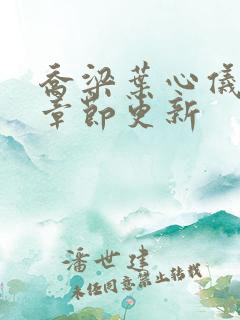 喬梁葉心儀
章節更新
潘世建
未经同意禁止转载